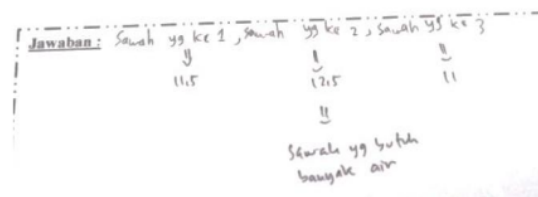 Jawaban : Sawah yg ke 1, Sawah yg ke 2, Sawah yg ke 3
11,5 12,5 11
Sawah yg butuh
banyak air